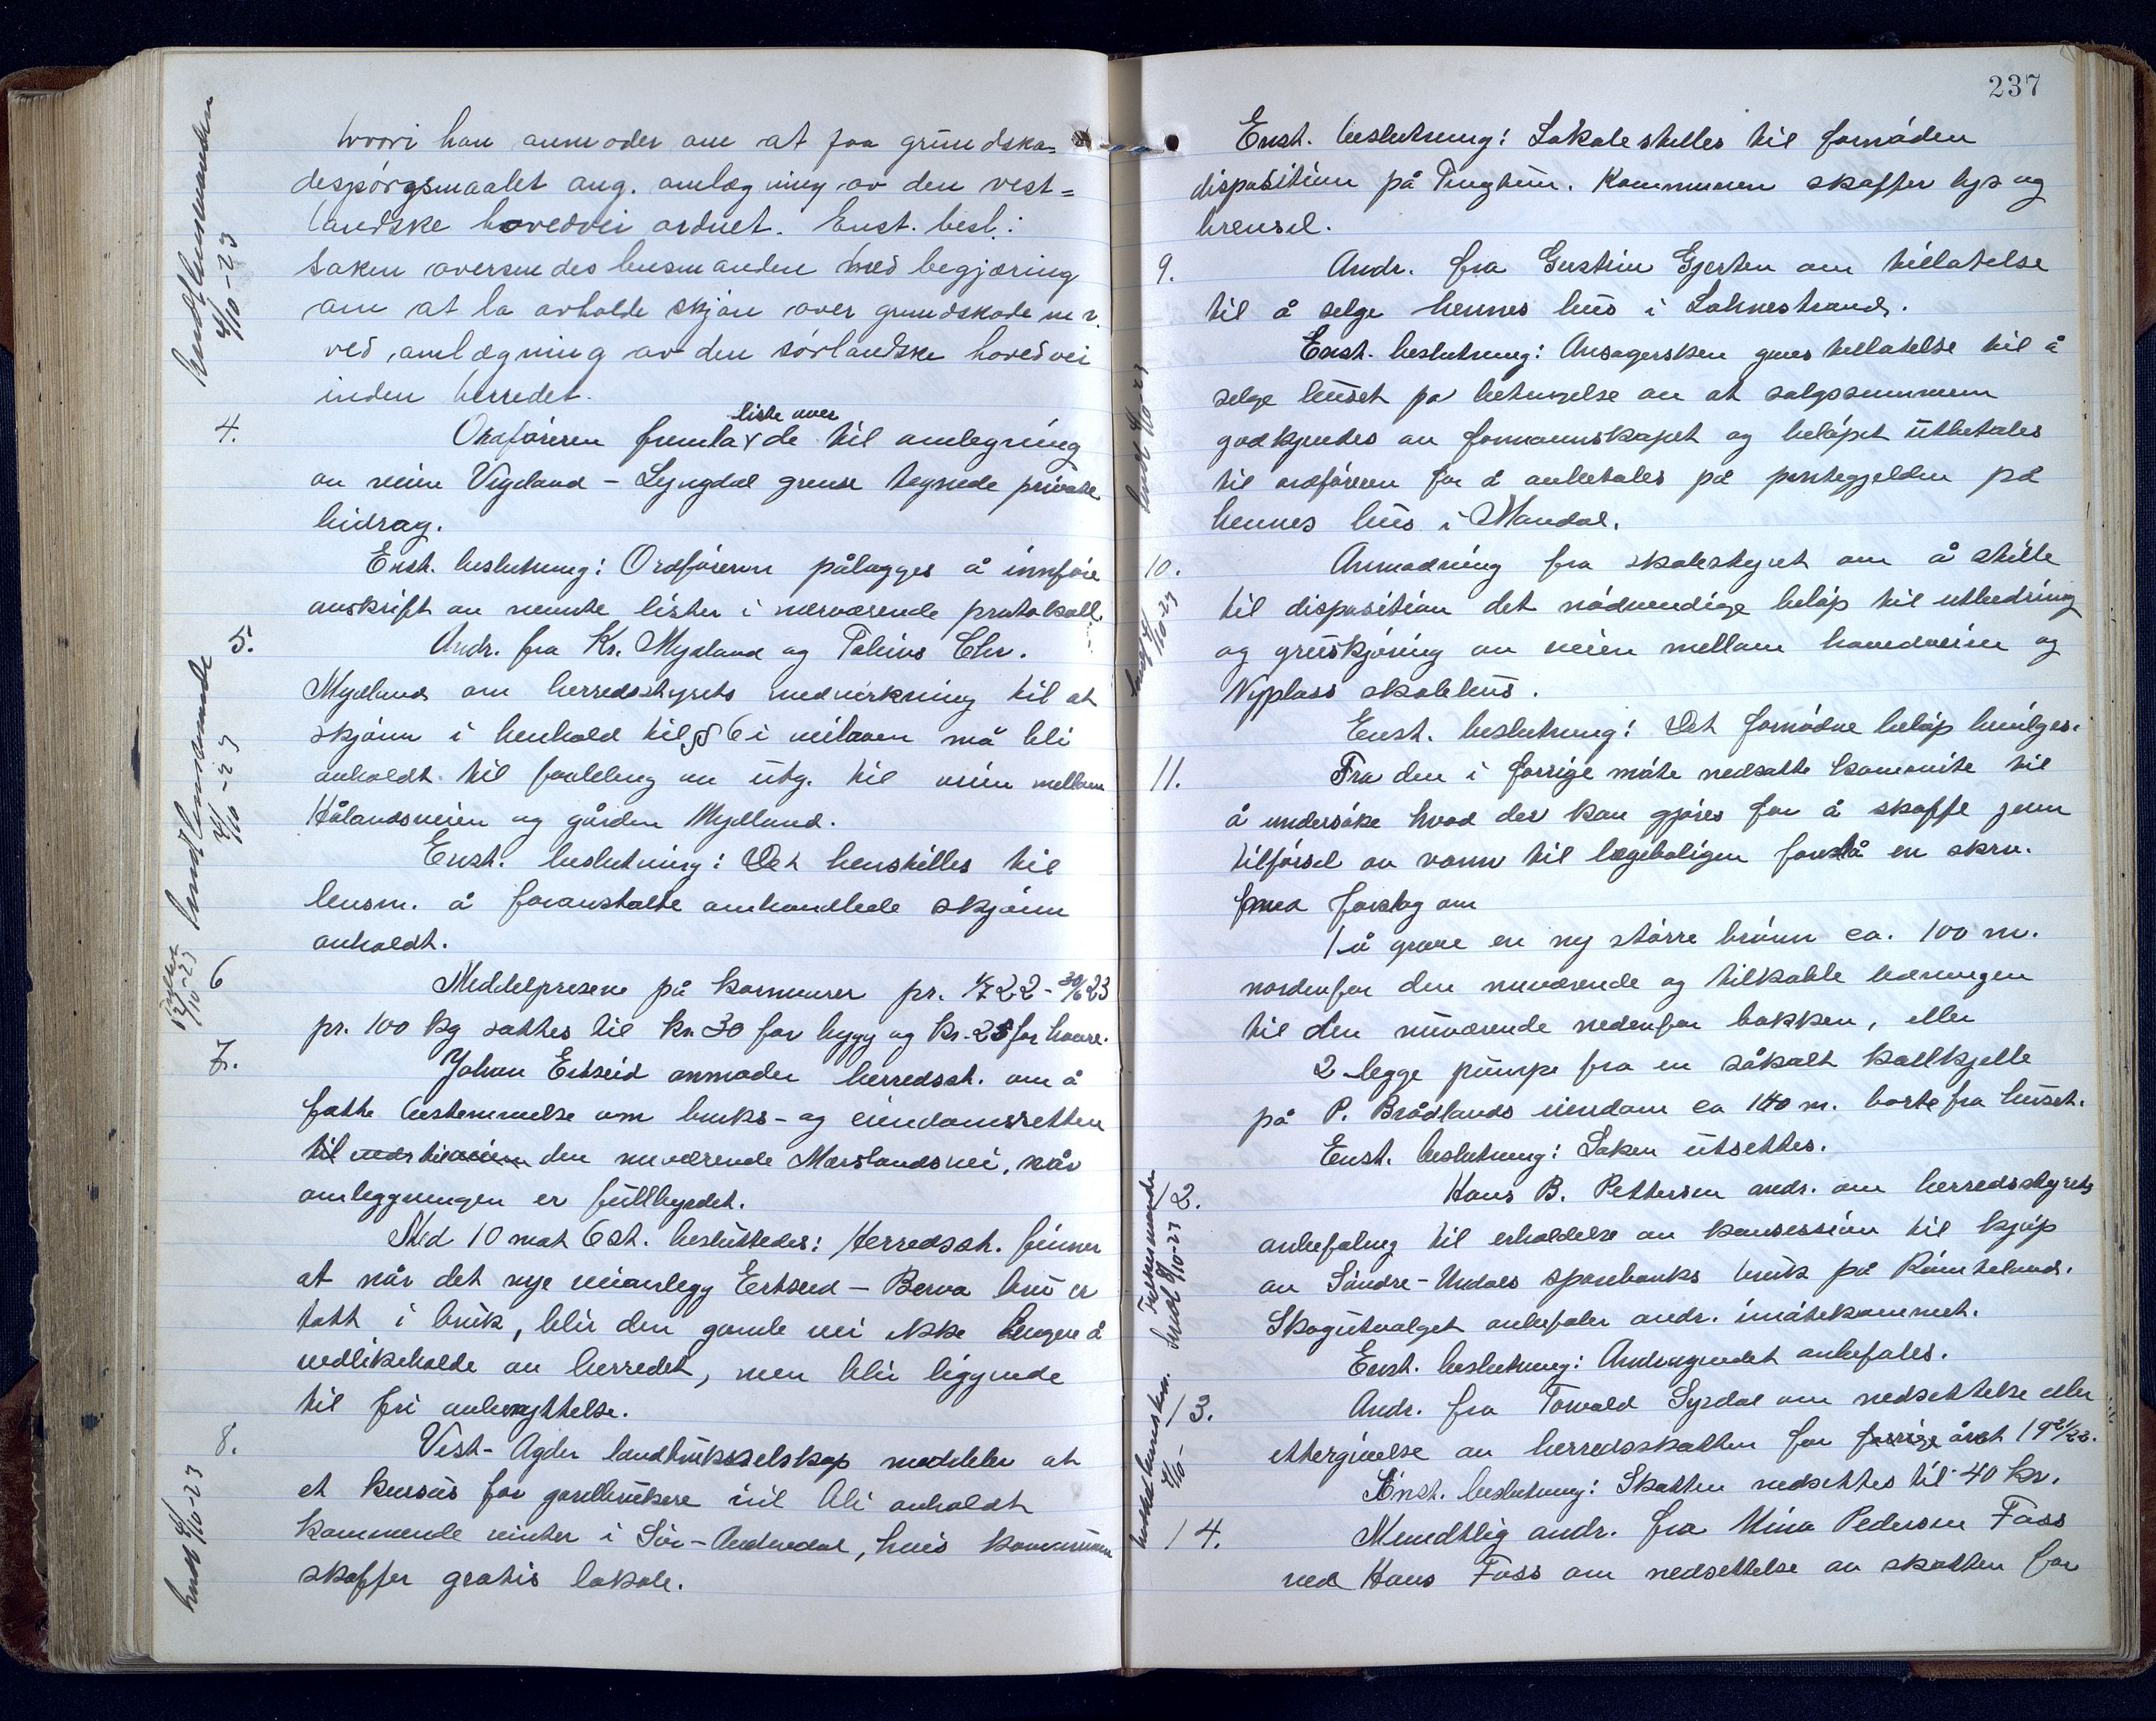 hvori han anmoder om at faa grundska=
despörgsmaalet ang. omlægning av den vest=
landske hovedvei ordnet. Enst. besl.:
Saken oversendes lensmanden med begjæring
om at la avholde skjön over grundskade m v.
ved omlægning av den sörlandske hovedvei
inden herredet.
4. Ordföreren fremla liste over de til omlegning
av veien Vigeland - Lyngdal grense tegnede private
bidrag.
Enst. beslutning: Ordföreren pålegges å innföre
avskrift av nevnte lister i nærværende protokoll.
5. Andr. fra Kr. Mydland og Tobias Chr.
Mydland om herredsstyrets medvirkning til at
skjönn i henhold til § 6 i veiloven må bli
avholdt til fordeling av utg. til veien mellem
Hålandsveien og gården Mydland.
Enst. beslutning: Det henstilles til
lensm. å foranstalte omhandlede skjönn
avholdt.
6 Middelprisene på kornvarer pr. 1/7 22 - 30/6 23
pr. 100 kg sattes til kr. 30 for bygg og kr. 25 for havre.
7. Johan Ertseid anmoder herredsst. om å
fatte bestemmelse om bruks- og eiendomsretten
til den nuværende Marslandsvei, når
omleggningen er fullbyrdet.
Med 10 mot 6 st. besluttedes: Herredsst. finner
at når det nye veianlegg Ertseid - Berva bru er
tatt i bruk, blir den gamle vei ikke lengere å
vedlikeholde av herredet, men blir liggende
til fri avbenyttelse.
8. Vest-Agder landbruksselskap meddeler at
et kursus for gardbrukere vil bli avholdt
kommende vinter i Sör-Audnedal, hvis kommunen
skaffer gratis lokale.
Sendt lensmanden
4/10-23
Sendt lensmands
4/10-23
12/10-23
Sendt 4/10-23
237
Enst. beslutning: Lokale stilles til fornöden
disposition på Tinghuus. Kommunen skaffer lys og
brensel.
9. Andr. fra Gustine Gjertsen om tillatelse
til å selge hennes hus i Lohnestrand.
Enst. beslutning: Ansögersken gives tillatelse til å
selge huset på betingelse av at salgssummen
godkjendes av formannskapet og belöpet utbetales
til ordföreren for å avbetales på pantegjelden på
hennes hus i Mandal.
10. Anmodning fra skolestyret om å stille
til disposition det nödvendige belöp til utbedring
og gruskjöring av veien mellem hovedveien og
Nyplass skolehus.
Enst. beslutning: Det fornödne belöp bevilges.
11. Fra den i forrige möte nedsatte komite til
å undersöke hvad der kan gjöres for å skaffe jevn
tilförsel av vann til lægeboligen forelå en skrv.
med forslag om
1 å grave en ny större brönn ca. 100 m.
nordenfor den nuværende og tilkoble ledningen
til den nuværende nedenfor bakken, eller
2 legge pumpe fra en såkalt kallkjelle
på P. Brådlands eiendom ca 140 m. borte fra huset.
Enst. beslutning: Saken utsettes.
12. Hans B. Pettersen andr. om herredsstyrets
anbefaling til erholdelse av konsession til kjöp
av Söndre-Undals sparebanks bruk på Rimteland.
Skogutvalget anbefaler andr. imötekommet.
Enst. beslutning: Andragendet anbefales.
13. Andr. fra Torvald Syrdal om nedsettelse eller
ettergivelse av herredsskatten for forrige året 1921/22.
Enst. beslutning: Skatten nedsettes til 40 kr.
14. Mundtlig andr. fra Mina Pedersen Foss
ved Hans Foss om nedsettelse av skatten for
Sendt 4/10-23
Sendt 4/10-23
Sendt 8/10-23
4/10-